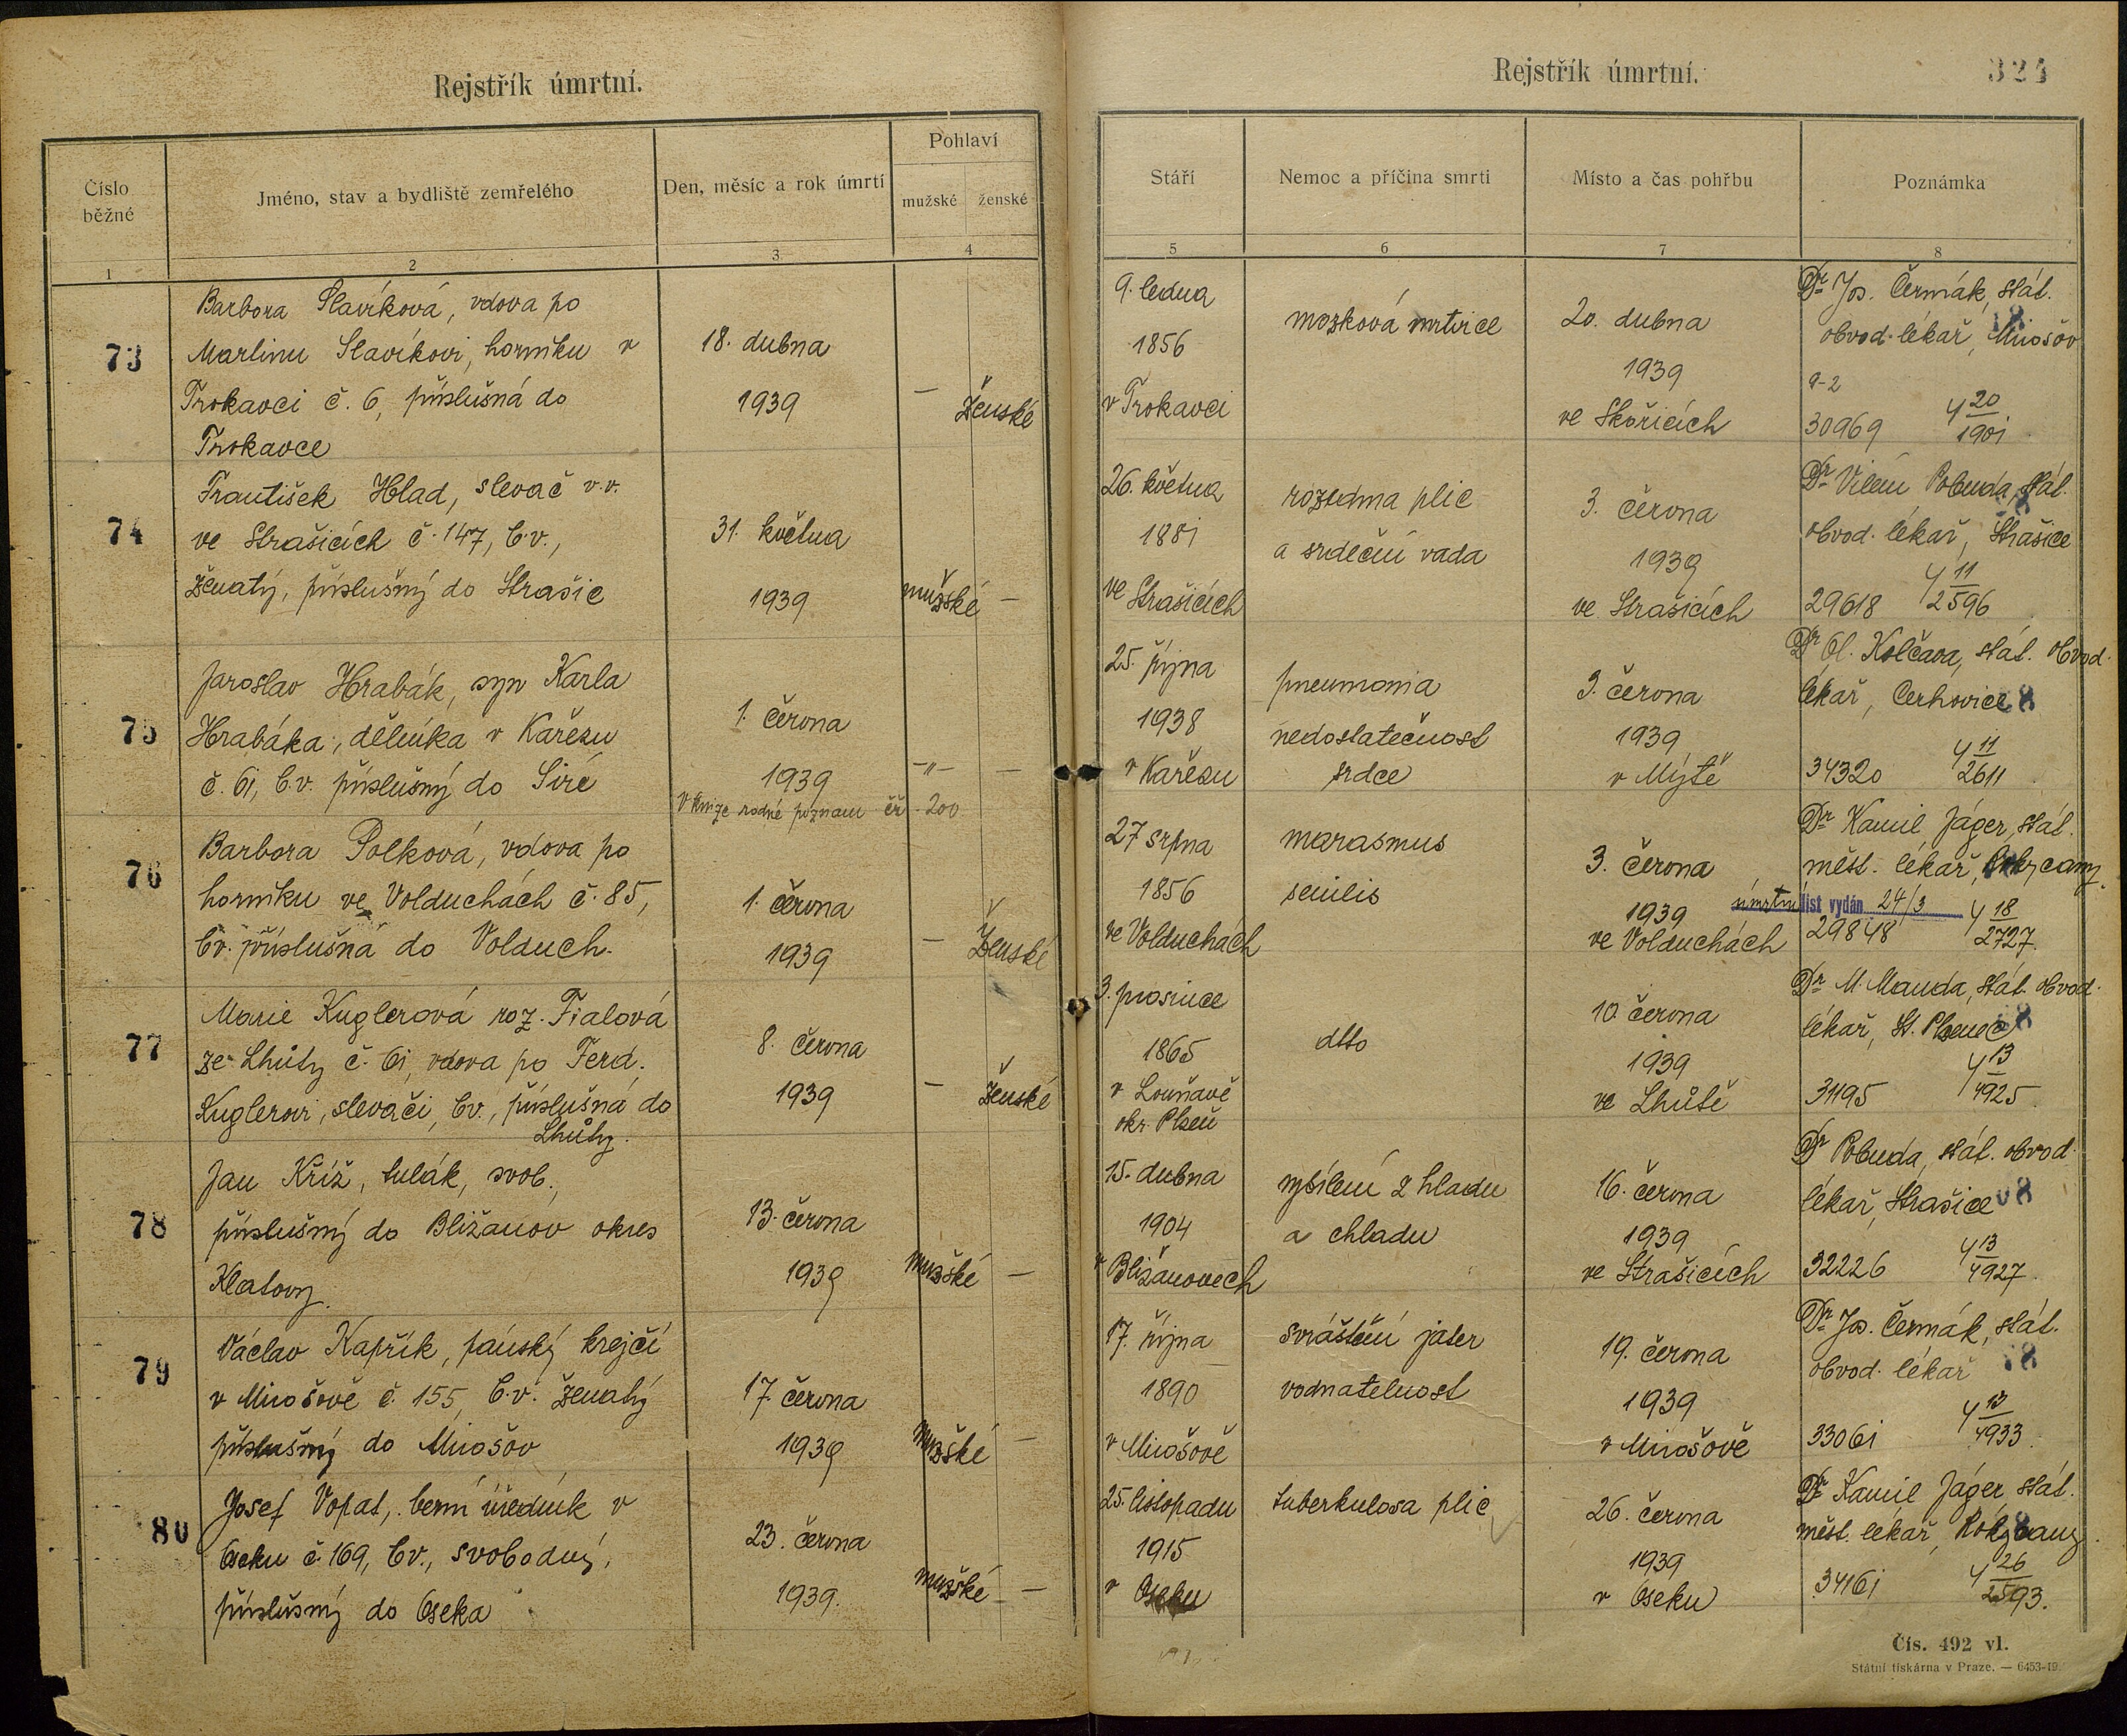 Rejstřík úmrtní.
Číslo běžné
Jméno, stav a bydliště zemřelého
Den, měsíc a rok úmrtí
Pohlaví
mužské
ženské
1
2
3
4
Rejstřík úmrtní.
324
Stáří
Nemoc a příčina smrti
Místo a čas pohřbu
Poznámka
5
6
7
8
73
Barbora Slavíková, vdova po
Martinu Slavíkovi, horníku v
Trokavci č. 6, příslušná do
Trokavce
18. dubna
1939
—
ženské
9. ledna
1856
v Trokavci
mozková mrtvice
20. dubna
1939
ve Skořicích
Dr Jos. Čermák, stát.
obvod. lékař, Mirošov
9-2
30969
4 20/1901
74
František Hlad, slevač v.v.
ve Strašicích č. 147, b.v.,
ženatý, příslušný do Strašic
31. května
1939
mužské
—
26. května
1881
ve Strašicích
rozedma plic
a srdeční vada
3. června
1939
ve Strašicích
Dr Vilém Pobuda, stát.
obvod. lékař, Strašice
29618
4 11/2596
75
Jaroslav Hrabák, syn Karla
Hrabáka, dělníka v Kařezu
č. 61, b.v. příslušný do Siré
1. června
1939
V knize rodné poznam čř. 200
—"—
—
25. října
1938
v Kařezu
pneumonia
nedostatečnost
srdce
3. června
1939
v Mýtě
Dr Ol. Kolčava, stát. obvod.
lékař, Cerhovice
34320
4 11/2611
76
Barbora Polková, vdova po
horníku ve Volduchách č. 85,
b.v. příslušná do Volduch.
1. června
1939
—
ženské
27 srpna
1856
ve Volduchách
marasmus
senilis
3. června
1939
ve Volduchách
Dr Kamil Jáger, stát.
měst. lékař, Rokycany.
úmrtní list vydán 24/3
29848
4 18/2727.
77
Marie Kuglerová roz. Fialová
ze Lhůty č. 61, vdova po Ferd.
Kuglerovi, slevači, b.v., příslušná do
Lhůty.
8. června
1939
—
ženské
3. prosince
1865
v Louňavě
okr. Plzeň
dtto
10. června
1939
ve Lhůtě
Dr M. Mauda, stát. obvod.
lékař, St. Plzenec
31195
4 13/4925
78
Jan Kříž, tulák, svob.,
příslušný do Bližanov okres
Klatovy.
13. června
1939
mužské
—
15. dubna
1904
v Bližanovech
vysílení z hladu
a chladu
16. června
1939
ve Strašicích
Dr Pobuda, stát. obvod.
lékař, Strašice
32226
4 13/4927.
79
Václav Kapřík, pánský krejčí
v Mirošově č. 155, b.v. ženatý
příslušný do Mirošov
17. června
1939
mužské
—
17. října
1890
v Mirošově
svráštění jater
vodnatelnost
19. června
1939
v Mirošově
Dr Jos. Čermák, stát.
obvod. lékař
33061
4 13/4933.
80
Josef Vopat, berní úředník v
Oseku č. 169, b.v., svobodný,
příslušný do Oseka
23. června
1939.
mužské
—
25. listopadu
1915
v Oseku
tuberkulosa plic
26. června
1939
v Oseku
Dr Kamil Jáger, stát.
měst. lékař, Rokycany.
34161
4 26/2593.
Čís. 492 vl.
Státní tiskárna v Praze. — 6453-19